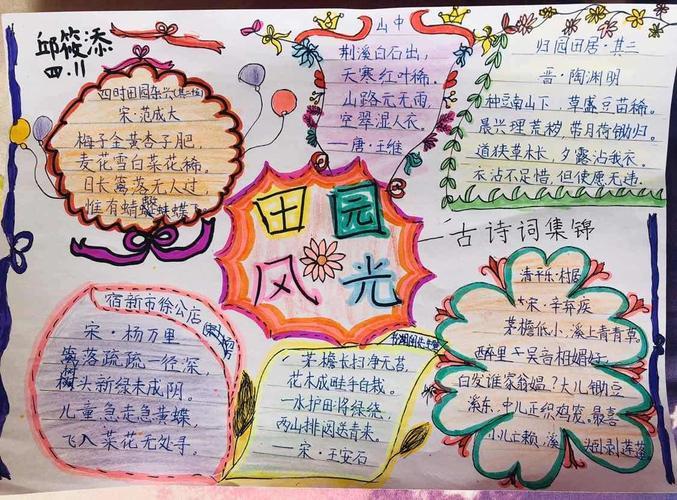 邱筱添
四.11
四时田园杂兴
宋·范成大
梅子金黄杏子肥,
麦花雪白菜花稀.
日长篱落无人过
惟有蜻 蛱蝶飞
山中
荆溪白石出,
天寒红叶稀。
山路元无雨,
空翠湿人衣。
—唐·王维
归园田居·其三
晋·陶渊明
种豆南山下,草盛豆苗稀。
晨兴理荒秽,带月荷锄归。
道狭草木长,夕露沾我衣。
衣沾不足惜,但使愿无违.
田园
风光
—古诗词集锦
宿新市徐公店
宋·杨万里
篱落疏疏一径深,
树头新绿未成阴。
儿童急走急黄蝶,
飞入菜花无处寻。
茅檐长扫净无苔,
花木成畦手自栽.
一水护田将绿绕,
两山排闼送青来。
—宋·王安石
清平乐·村居
*宋·辛弃疾
茅檐低小,溪上青青草。
醉里吴音相媚好,
白发谁家翁媪?大儿锄豆
溪东,中儿正织鸡笼。最喜
小儿亡赖,溪头卧剥莲蓬